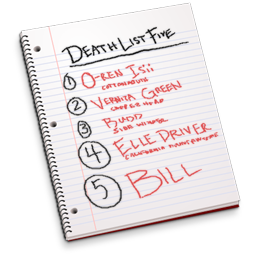 DEATH LIST FIVE
1 O-REN ISHII
COTTONMOUTH
2 VERNITA GREEN
COPPERHEAD
3 BUDD
SIDE WINDER
4 ELLE DRIVER
CALIFORNIA MOUNTAIN SNAKE
5 BILL